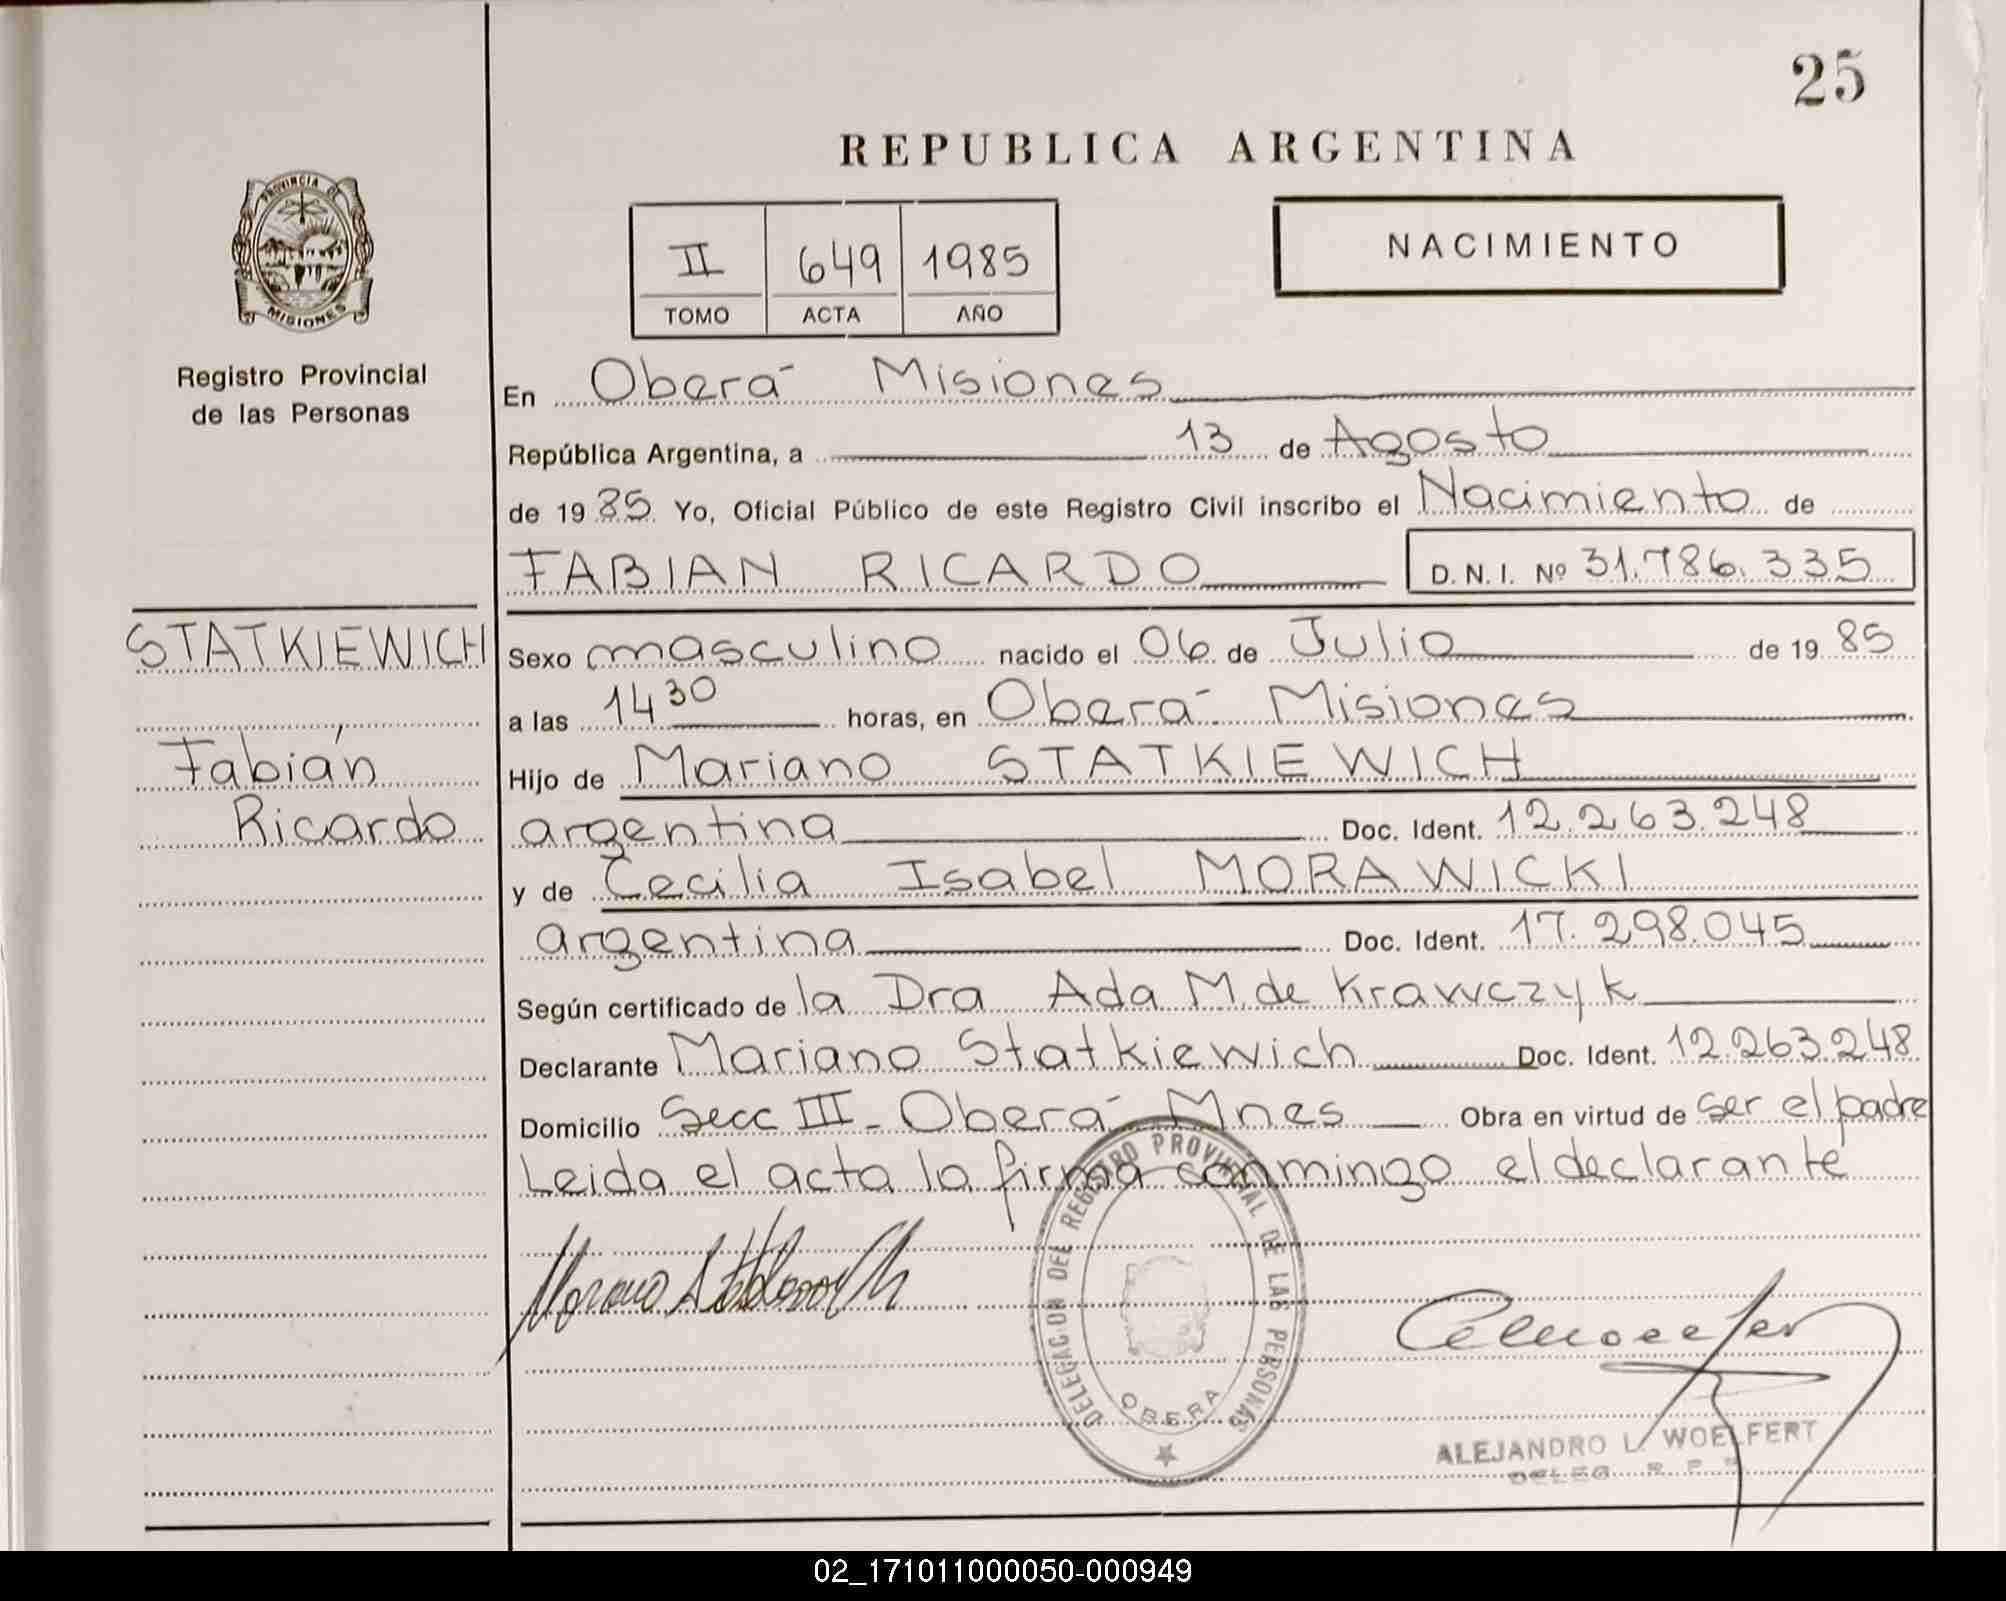 25
REPUBLICA ARGENTINA
PROVINCIA DE
MISIONES
Registro Provincial
de las Personas
II 649 1985
TOMO ACTA AÑO
NACIMIENTO
En Oberá Misiones
República Argentina, a 13 de Agosto
de 1985 Yo, Oficial Público de este Registro Civil inscribo el Nacimiento de
FABIAN RICARDO D.N.I. Nº 31.786.335
STATKIEWICH
Fabián
Ricardo
Sexo masculino nacido el 06 de Julio de 1985
a las 14 30 horas, en Oberá Misiones
Hijo de Mariano STATKIEWICH
argentina Doc. Ident. 12.263.248
y de Cecilia Isabel MORAWICKI
argentina Doc. Ident. 17.298.045
Según certificado de la Dra Ada M. de Krawczyk
Declarante Mariano Statkiewich Doc. Ident. 12.263.248
Domicilio Secc III - Oberá Mnes Obra en virtud de ser el padre
Leida el acta la firma conmingo el declarante
DELEGACION DEL REGISTRO PROVINCIAL DE LAS PERSONAS
OBERA
ALEJANDRO L. WOELFERT
DELEG. R. P.
02_171011000050-000949